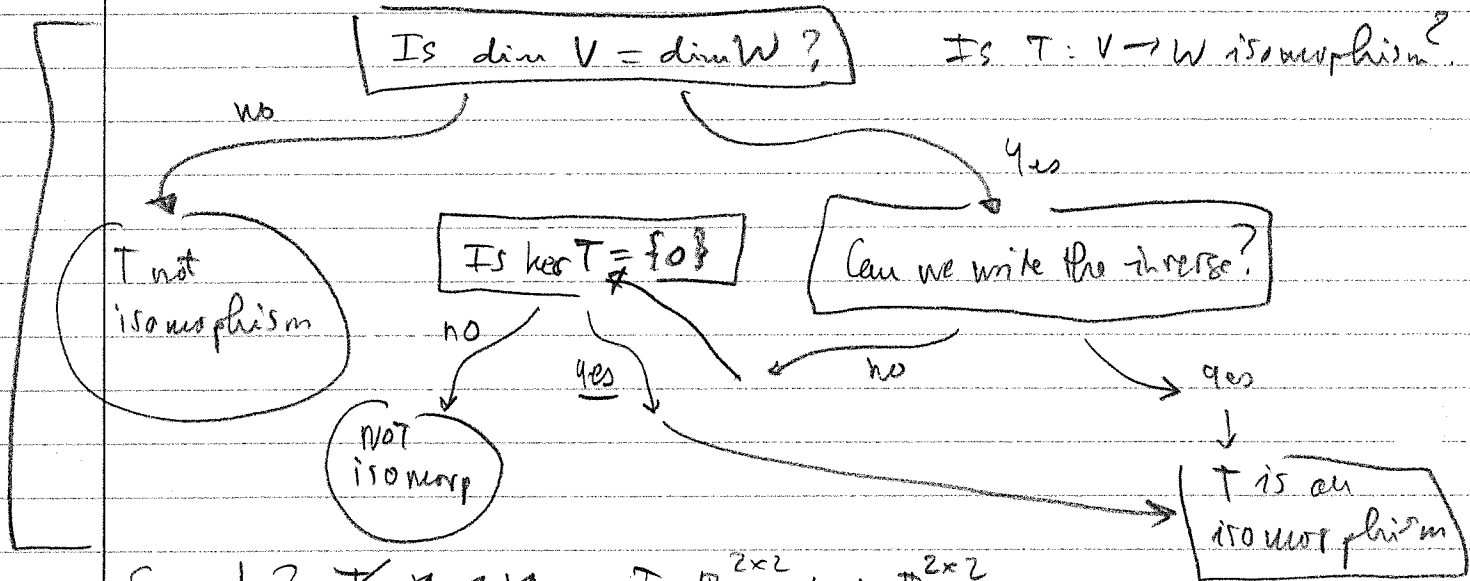 Is dim V = dim W ?
Is T : V → W isomorphism?
no
Yes
T not
isomorphism
Is ker T = {0}
Can we write the inverse?
no
yes
no
yes
NOT
isomorp
T is an
isomorphism
2x2
2x2